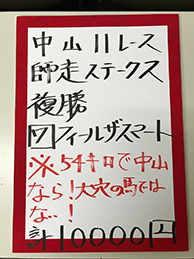 中山11レース
師走ステークス
複勝
7フィールザスマート
※54キロで中山
なら!大穴の馬では
な..!
計10000円